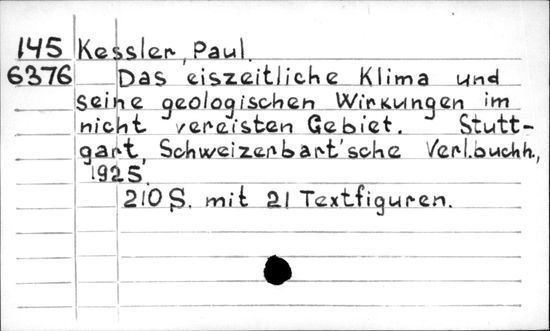 145 Kessler, Paul.
6376 Das eiszeitliche Klima und
seine geologischen Wirkungen im
nicht vereisten Gebiet. Stutt-
gart, Schweizerbart'sche Verl.buchh.,
1925.
210 S. mit 21 Textfiguren.